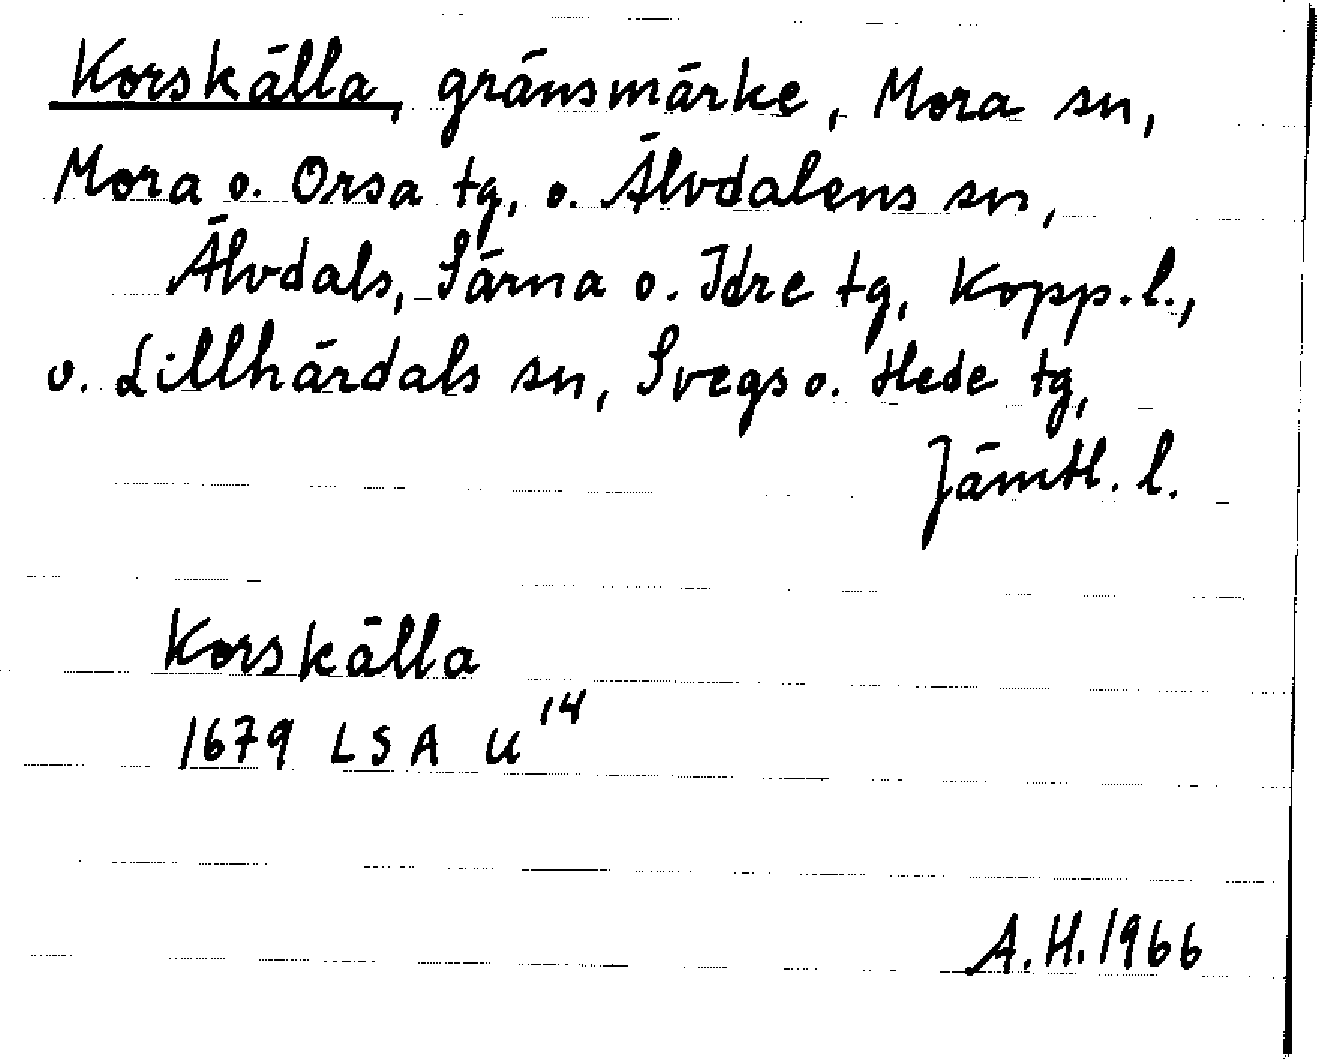 Korskälla, gränsmärke, Mora sn,
Mora o. Orsa tg, o. Älvdalens sn,
Älvdals, Särna o. Idre tg, Kopp. l.,
o. Lillhärdals sn, Svegs o. Hede tg,
Jämtl. l.
Korskälla
1679 LSA U 14
A.H. 1966